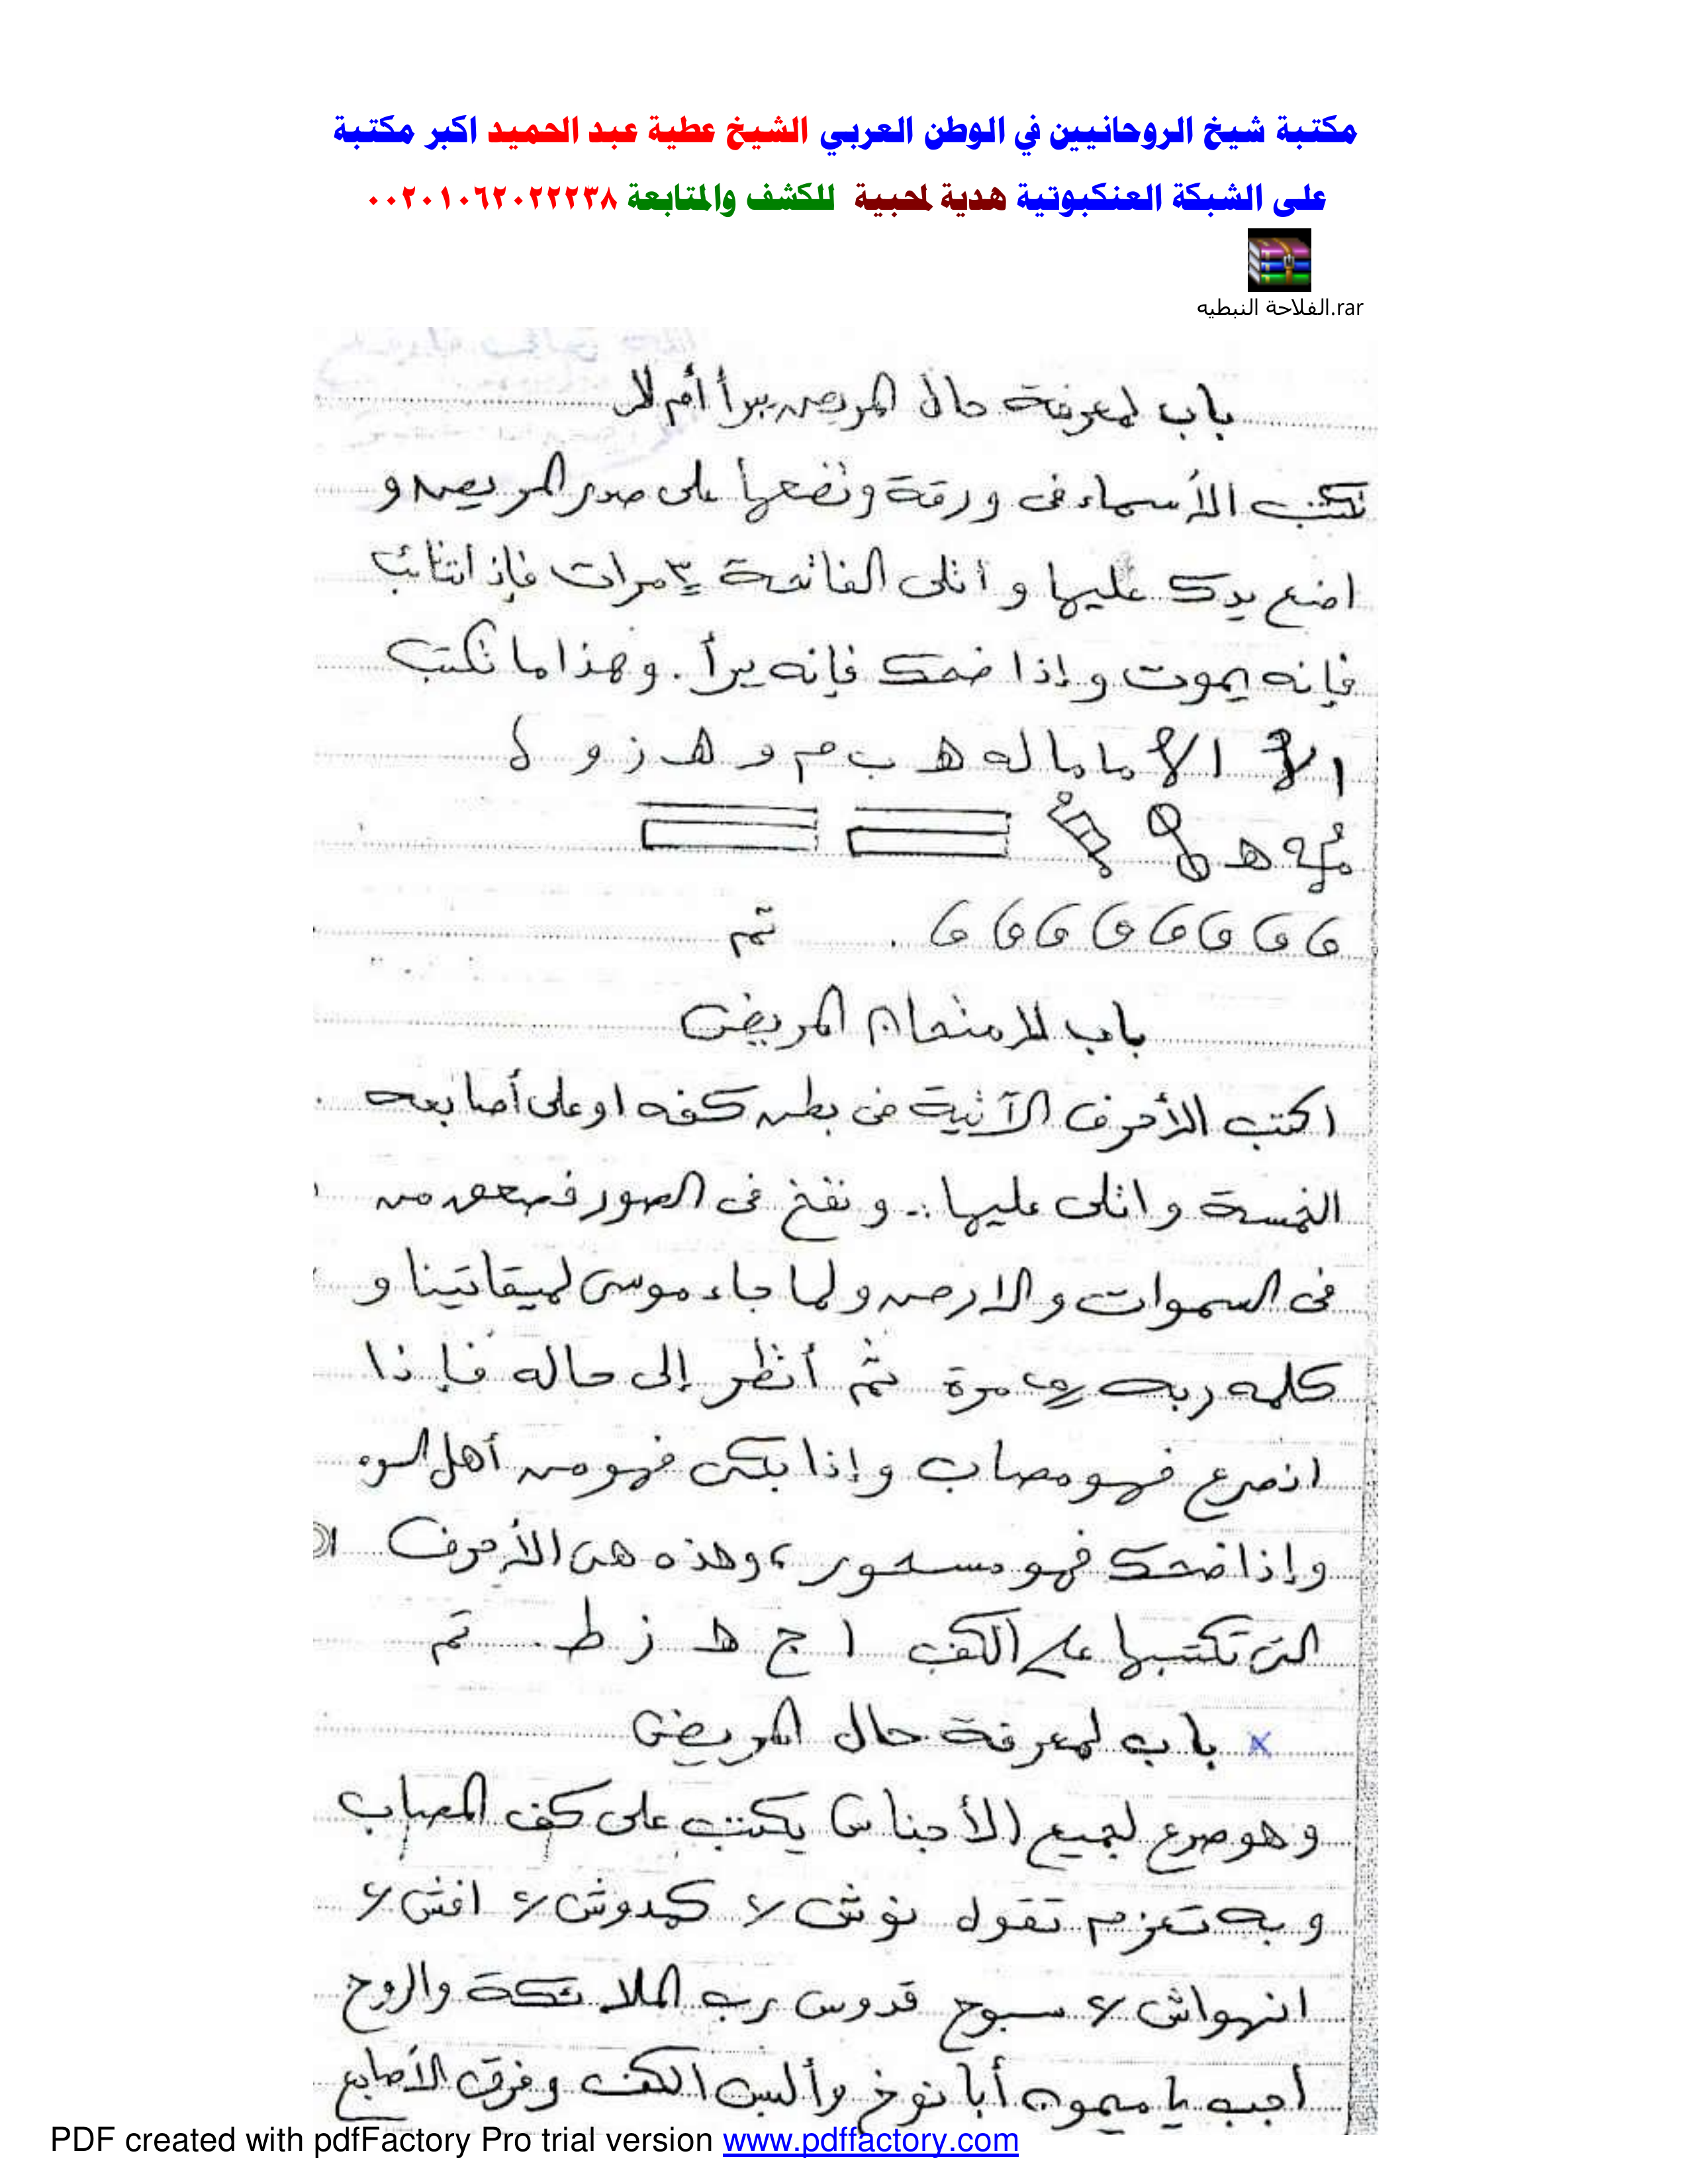 مكتبة شيخ الروحانيين في الوطن العربي الشيخ عطية عبد الحميد اكبر مكتبة
على الشبكة العنكبوتية هدية لمحبية للكشف والمتابعة ٠٠٢٠١٠٦٢٠٢٢٢٣٨
الفلاحة النبطيه.rar
باب لمعرفة حال المريض يبرأ أم لا
نكتب الأسماء فى ورقة ونضعها على صدر المريض و
اضع يدك عليها و اتلى الفاتحة ٣ مرات فإذا تثائب
فإنه يموت وإذا ضحك فإنه يبرأ. وهذا ما نكتب
الا الا ما ما له ه ب م و ه ز و
ه
تم
باب للامتحان المريض
اكتب الأحرف الآتية فى بطن كفه او على أصابعه
الخمسة و اتلى عليها .. و نفخ فى الصور فصعق من
فى السموات و الارض و لما جاء موسى لميقاتينا و
كلمه ربه مرة ثم أنظر إلى حاله فإذا
انصرع فهو مصاب وإذا بكى فهو من أهل السوء
وإذا ضحك فهو مسحور ، وهذه هى الأحرف
التى تكتبها على الكف ا ج ه ز ط تم
× باب لمعرفة حال المريض
و هو صرع لجميع الأجناس يكتب على كف المصاب
و به تعزم تقول نوش ٧ كيدوش ٧ افش ٧
انهواش ٧ سبوح قدوس رب الملائكة والروح
أجب يا ميمون أبا نوخ وألبس الكف وفرق الأصابع
PDF created with pdfFactory Pro trial version www.pdffactory.com